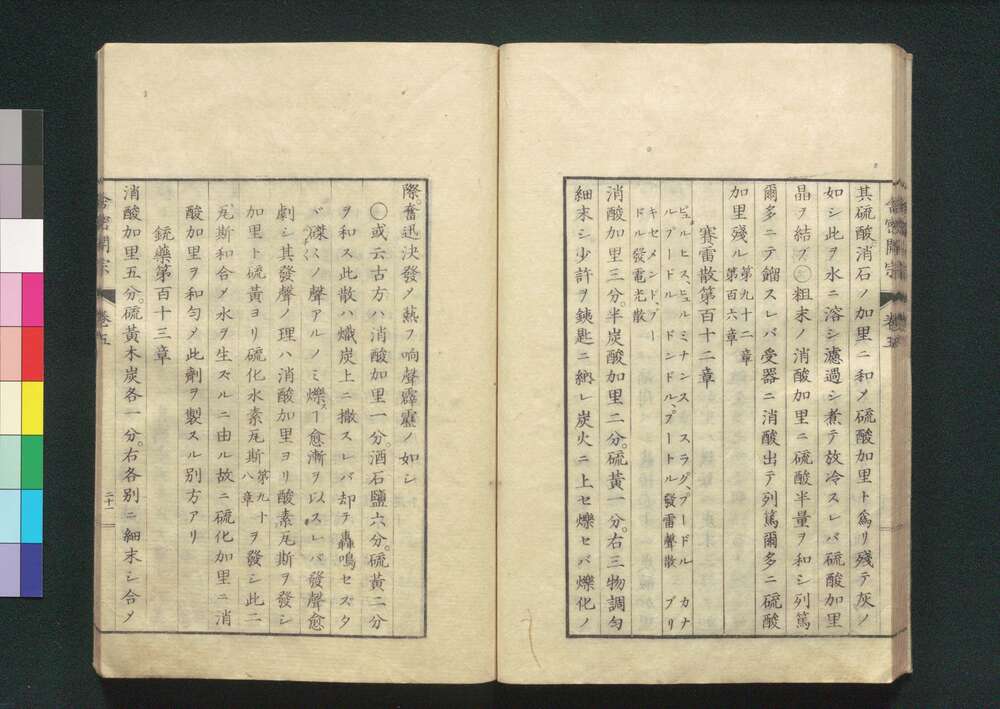 其硫酸消石ノ加里ニ和メ硫酸加里ト爲リ殘テ灰ノ
如シ此ヲ水ニ溶シ濾過シ煮テ放冷スレバ硫酸加里
晶ヲ結ブ○粗末ノ消酸加里ニ硫酸半量ヲ和シ列篤
爾多ニテ餾スレバ受器ニ消酸出テ列篤爾多ニ硫酸
加里殘ル第九十二章第百六章
賽雷散第百十二章
ピュルヒス、ピュルミナンス スラグ、プードル カナ
ルプードル ドンドル、プートル發雷聲散 ブリ
キセメンド、プー
ドル發電光散
消酸加里三分。半炭酸加里二分。硫黃一分。右三物調勻
細末シ少許ヲ銕匙ニ納レ炭火ニ上セ爍セバ爍化ノ
際。奮迅決發メ熱フ响聲霹靂ノ如シ
○或云古方ハ消酸加里一分。酒石鹽六分。硫黃二分
ヲ和ス此散ハ熾炭上ニ撒スレバ却テ轟鳴セズタ
ヾ磔々ノ聲アルノミ爍スー愈漸ヲ以スレバ發聲愈
劇シ其發聲ノ理ハ消酸加里ヨリ酸素瓦斯ヲ發シ
加里ト硫黃ヨリ硫化水素瓦斯第九十八章ヲ發シ此二
瓦斯和合メ水ヲ生ズルニ由ル故ニ硫化加里ニ消
酸加里ヲ和勻メ此劑ヲ製スル別方アリ
銃藥第百十三章
消酸加里五分。硫黃木炭各一分。右各別ニ細末シ合メ
舎密開宗
巻五
二十一